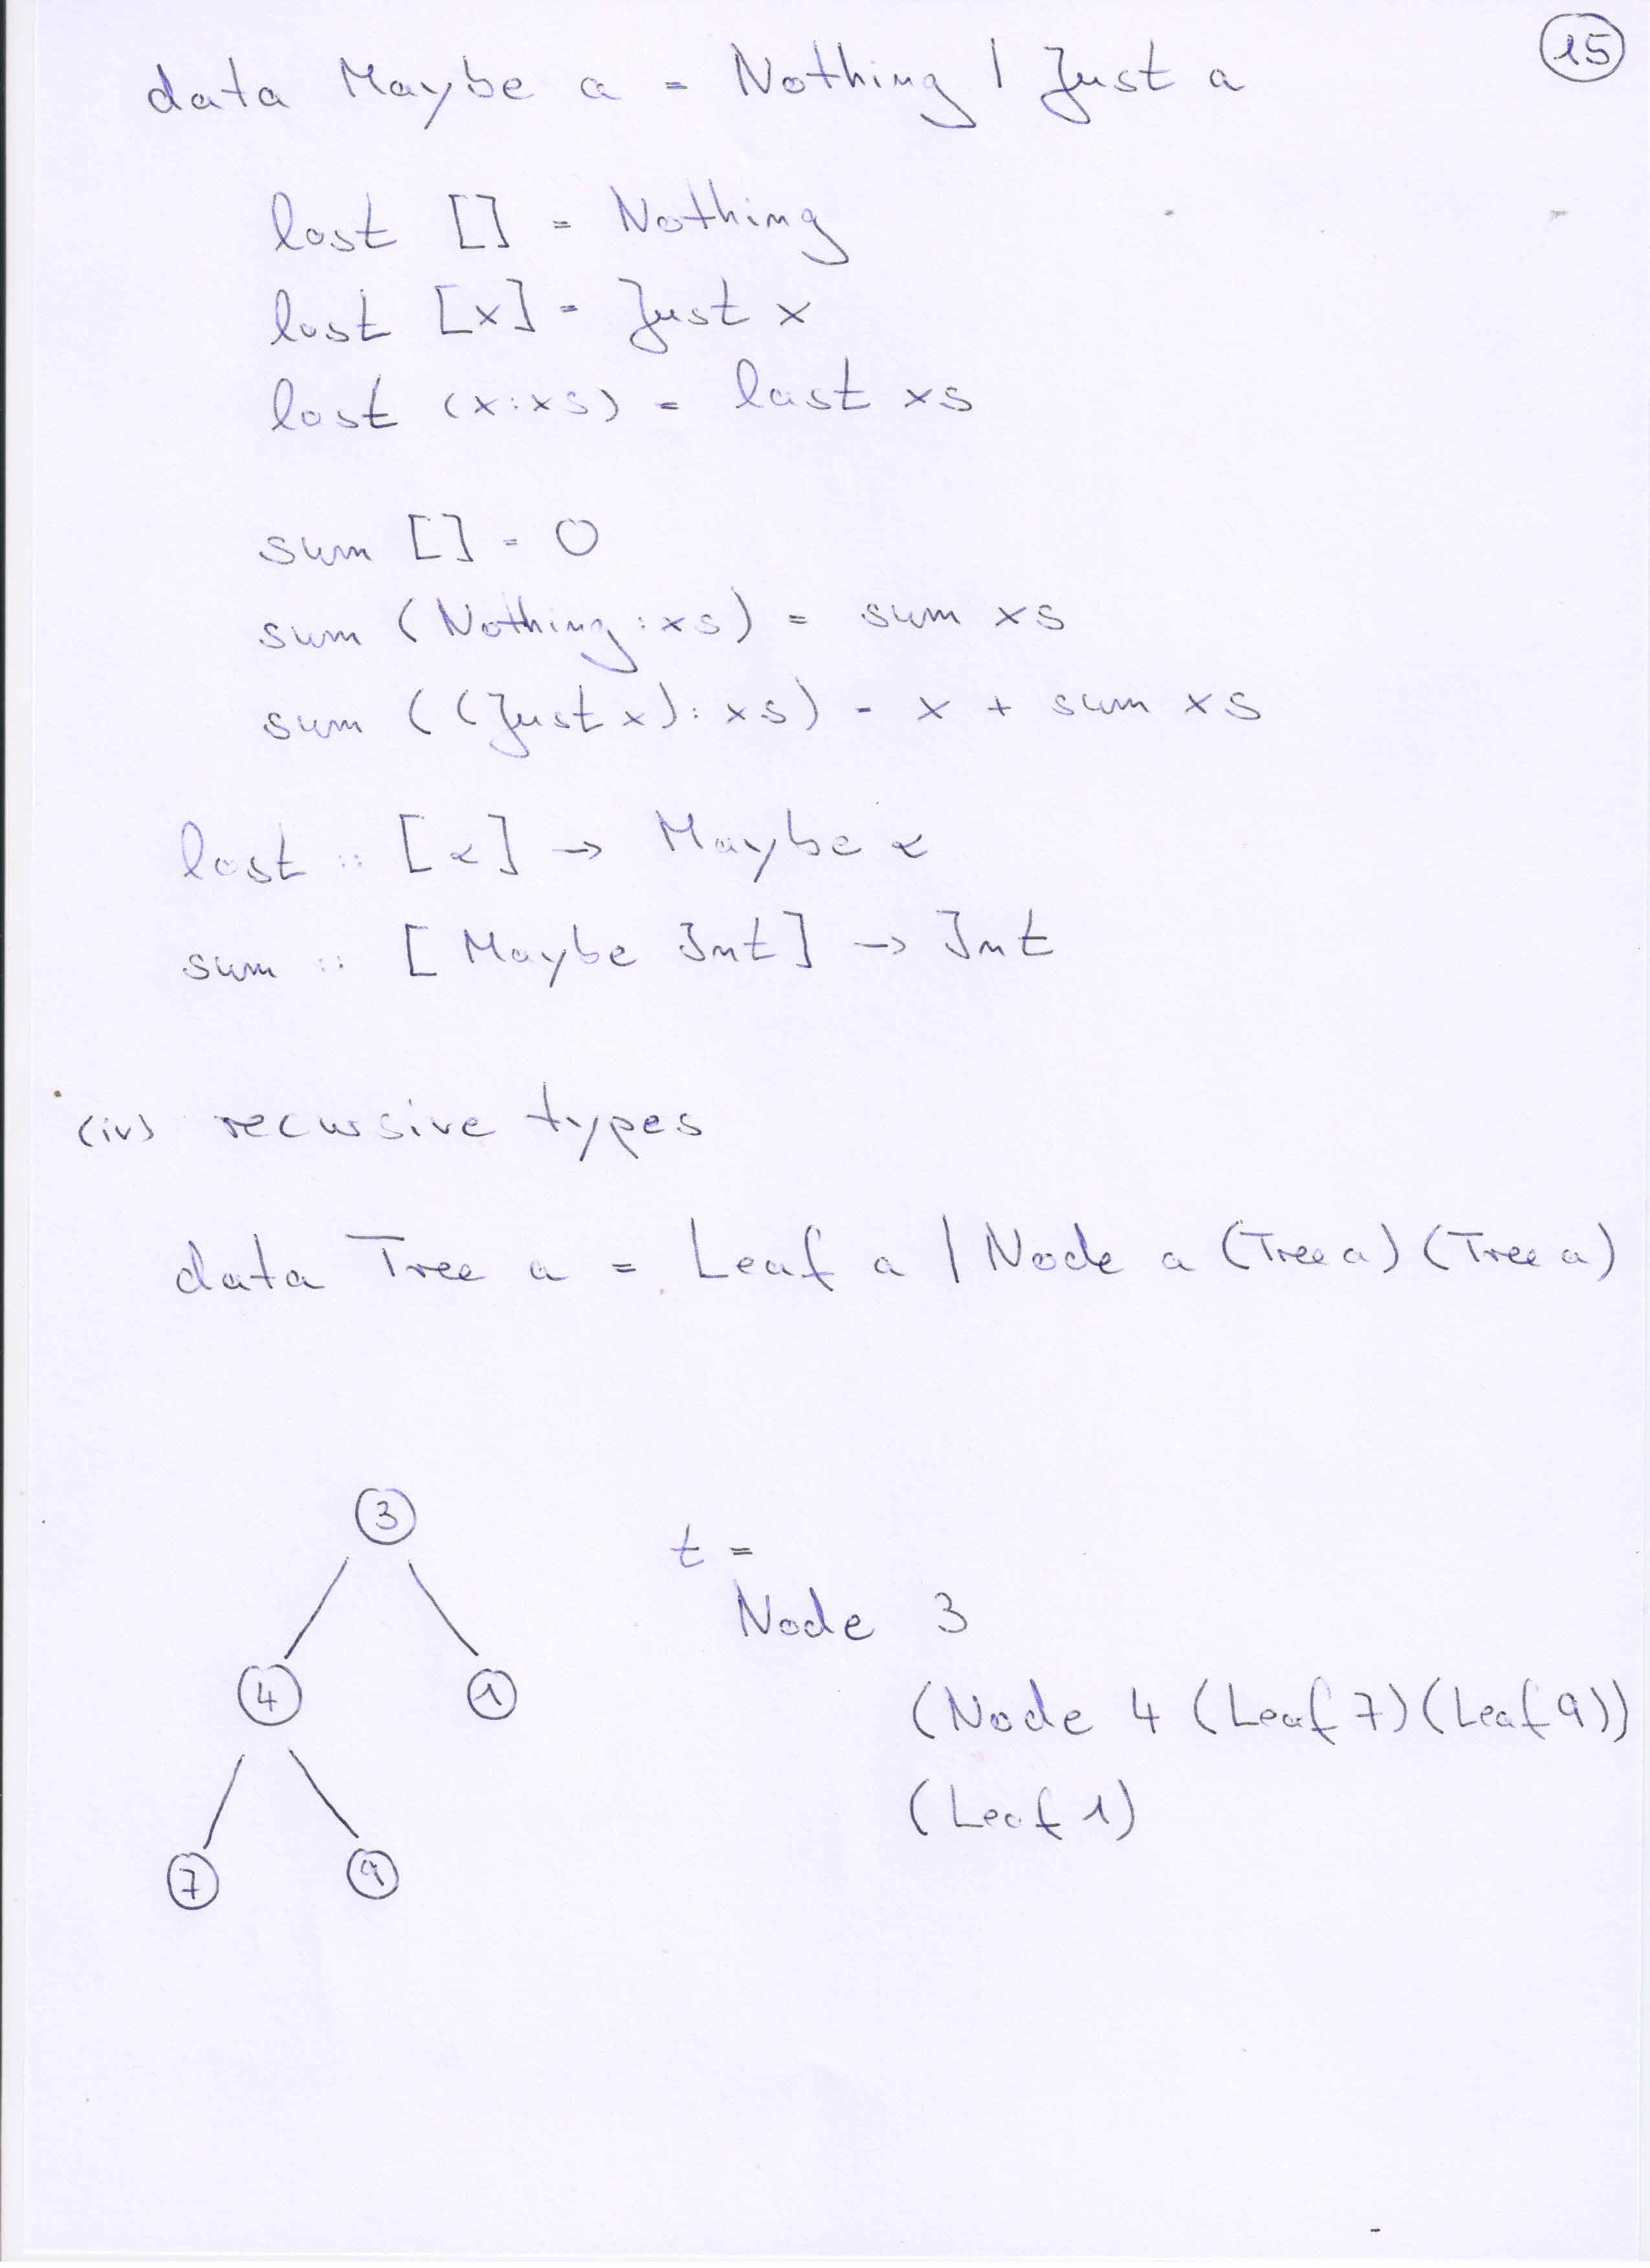 15
data Maybe a = Nothing | Just a
last [] = Nothing
last [x] = Just x
last (x:xs) = last xs
sum [] = 0
sum (Nothing:xs) = sum xs
sum ((Just x):xs) = x + sum xs
last :: [α] → Maybe α
sum :: [Maybe Int] → Int
(iv) recursive types
data Tree a = Leaf a | Node a (Tree a) (Tree a)
3
t =
Node 3
4 1
(Node 4 (Leaf 7) (Leaf 9))
(Leaf 1)
7 9